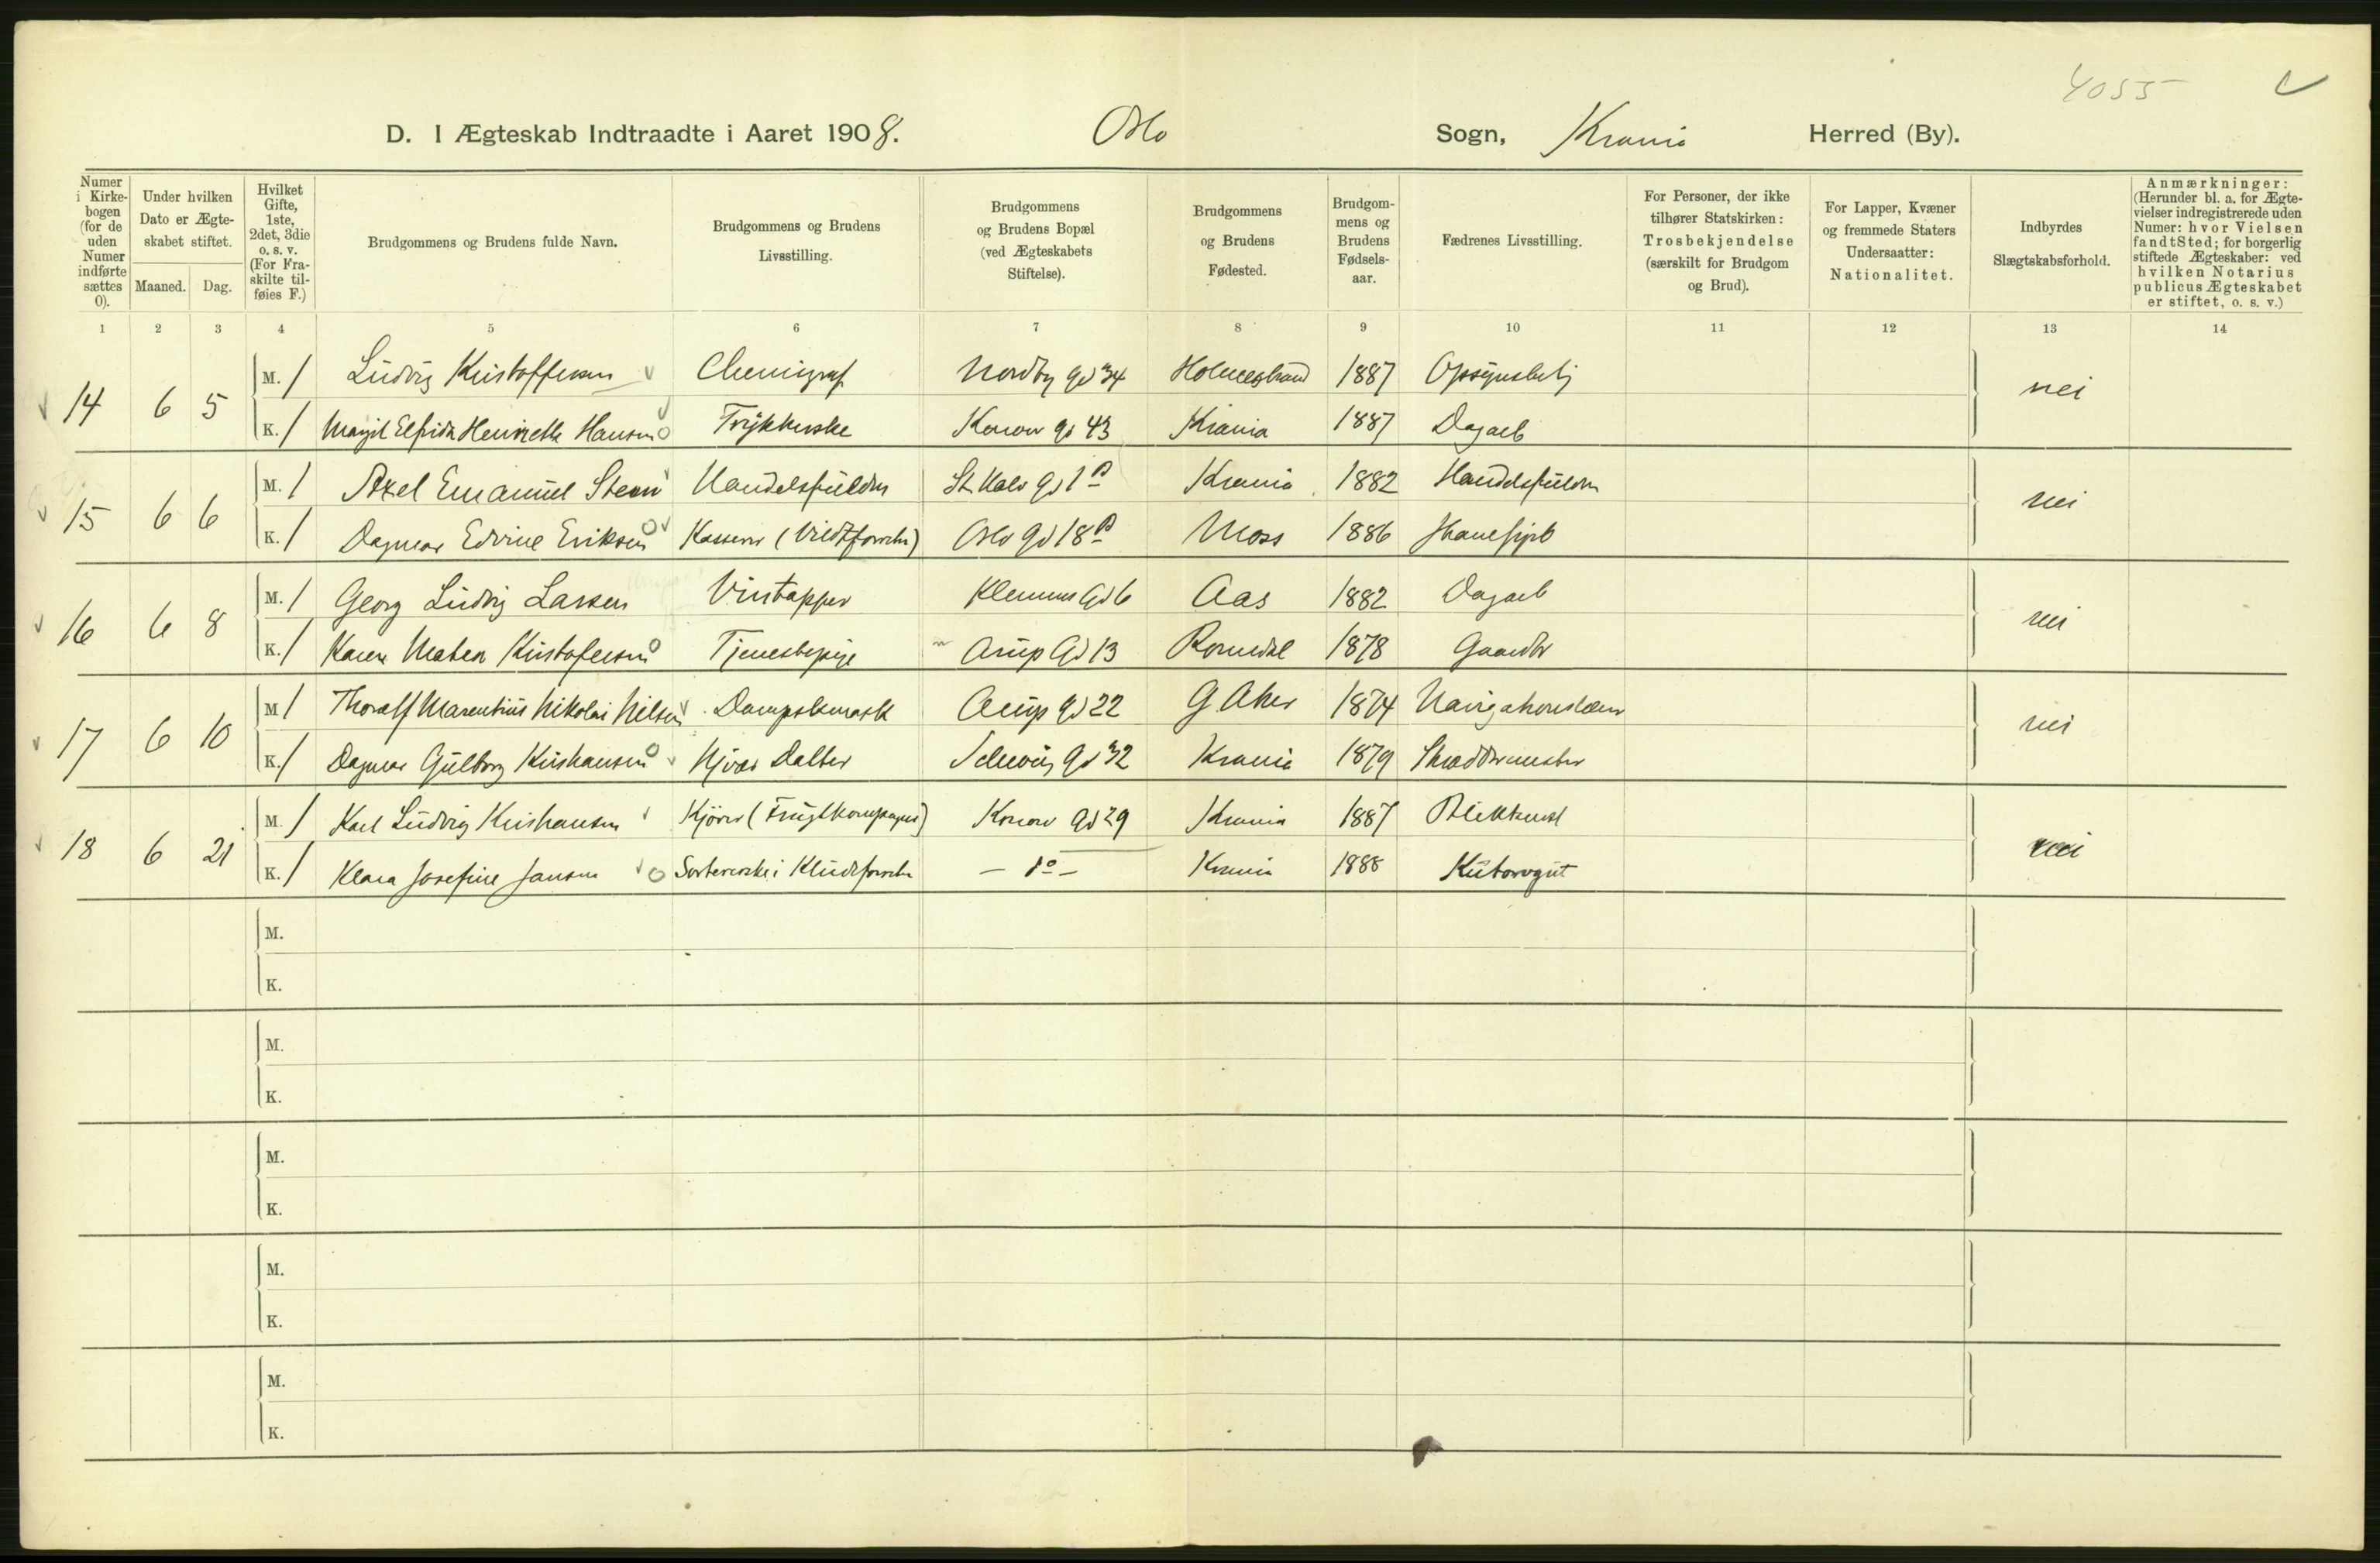 4055
D. I Ægteskab Indtraadte i Aaret 1908. Oslo Sogn, Krania Herred (By).
Numer i Kirkebogen (for de uden Numer indførte sættes 0).
Under hvilken Dato er Ægteskabet stiftet.
Maaned. Dag.
Hvilket Gifte, 1ste, 2det, 3die o. s. v. (For Fraskilte tilføies F.)
Brudgommens og Brudens fulde Navn.
Brudgommens og Brudens Livsstilling.
Brudgommens og Brudens Bopæl (ved Ægteskabets Stiftelse).
Brudgommens og Brudens Fødested.
Brudgommens og Brudens Fødselsaar.
Fædrenes Livsstilling.
For Personer, der ikke tilhører Statskirken: Trosbekjendelse (særskilt for Brudgom og Brud).
For Lapper, Kvæner og fremmede Staters Undersaatter: Nationalitet.
Indbyrdes Slægtskabsforhold.
Anmærkninger: (Herunder bl. a. for Ægtevielser indregistrerede uden Numer: hvor Vielsen fandt Sted; for borgerlig stiftede Ægteskaber: ved hvilken Notarius publicus Ægteskabet er stiftet, o. s. v.)
1 2 3 4 5 6 7 8 9 10 11 12 13 14
14 6 5 M. 1 Ludvig Kristoffersen Chemigraf Nordby gd 34 Holmestrand 1887 Opsynsbetj nei
K. 1 Margit Elfrida Henriette Hansen Trykkerske Konow gd 43 Krania 1887 Dagarb
15 6 6 M. 1 Axel Emanuel Steen Handelsfuldm St. Halv gd 1 B Krania 1882 Handelsfuldm nei
K. 1 Dagmar Edvine Eriksen Kasserer (Vildtforretn) Oslo gd 18 B Moss 1886
16 6 8 M. 1 Georg Ludvig Larsen Vintapper Klemms Gd 6 Aas 1882 Dagarb nei
K. 1 Karen Mathea Kristofersen Tjenestepige Arup Gd 13 Romedal 1878 Gaardbr
17 6 10 M 1 Thoralf Marentius Nikolai Nilsen Dampskmask Arup gd 22 G Aker 1874 Navigationslærer nei
K. 1 Dagmar Gulborg Kristiansen Schweig gd 32 Krania 1879 Skræddermester
18 6 21 M. 1 Karl Ludvig Kristiansen Kjører (Frugtkompagni) Konow gd 29 Krania 1887 nei
K. 1 Klara Josefine Jansen Sortererske i Kludeforretn — do — Krania 1888
M.
K.
M.
K.
M.
K.
M.
K.
M.
K.